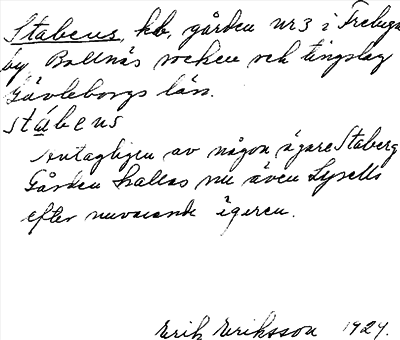 Stabens, kb, gården nr 3 i Freluga
by Bollnäs socken och tingslag
Gävleborgs län.
stábens
Antagligen av någon ägare Staberg
Gården kallas nu även Lysells
efter nuvarande ägeren.
Erik Eriksson 1924.